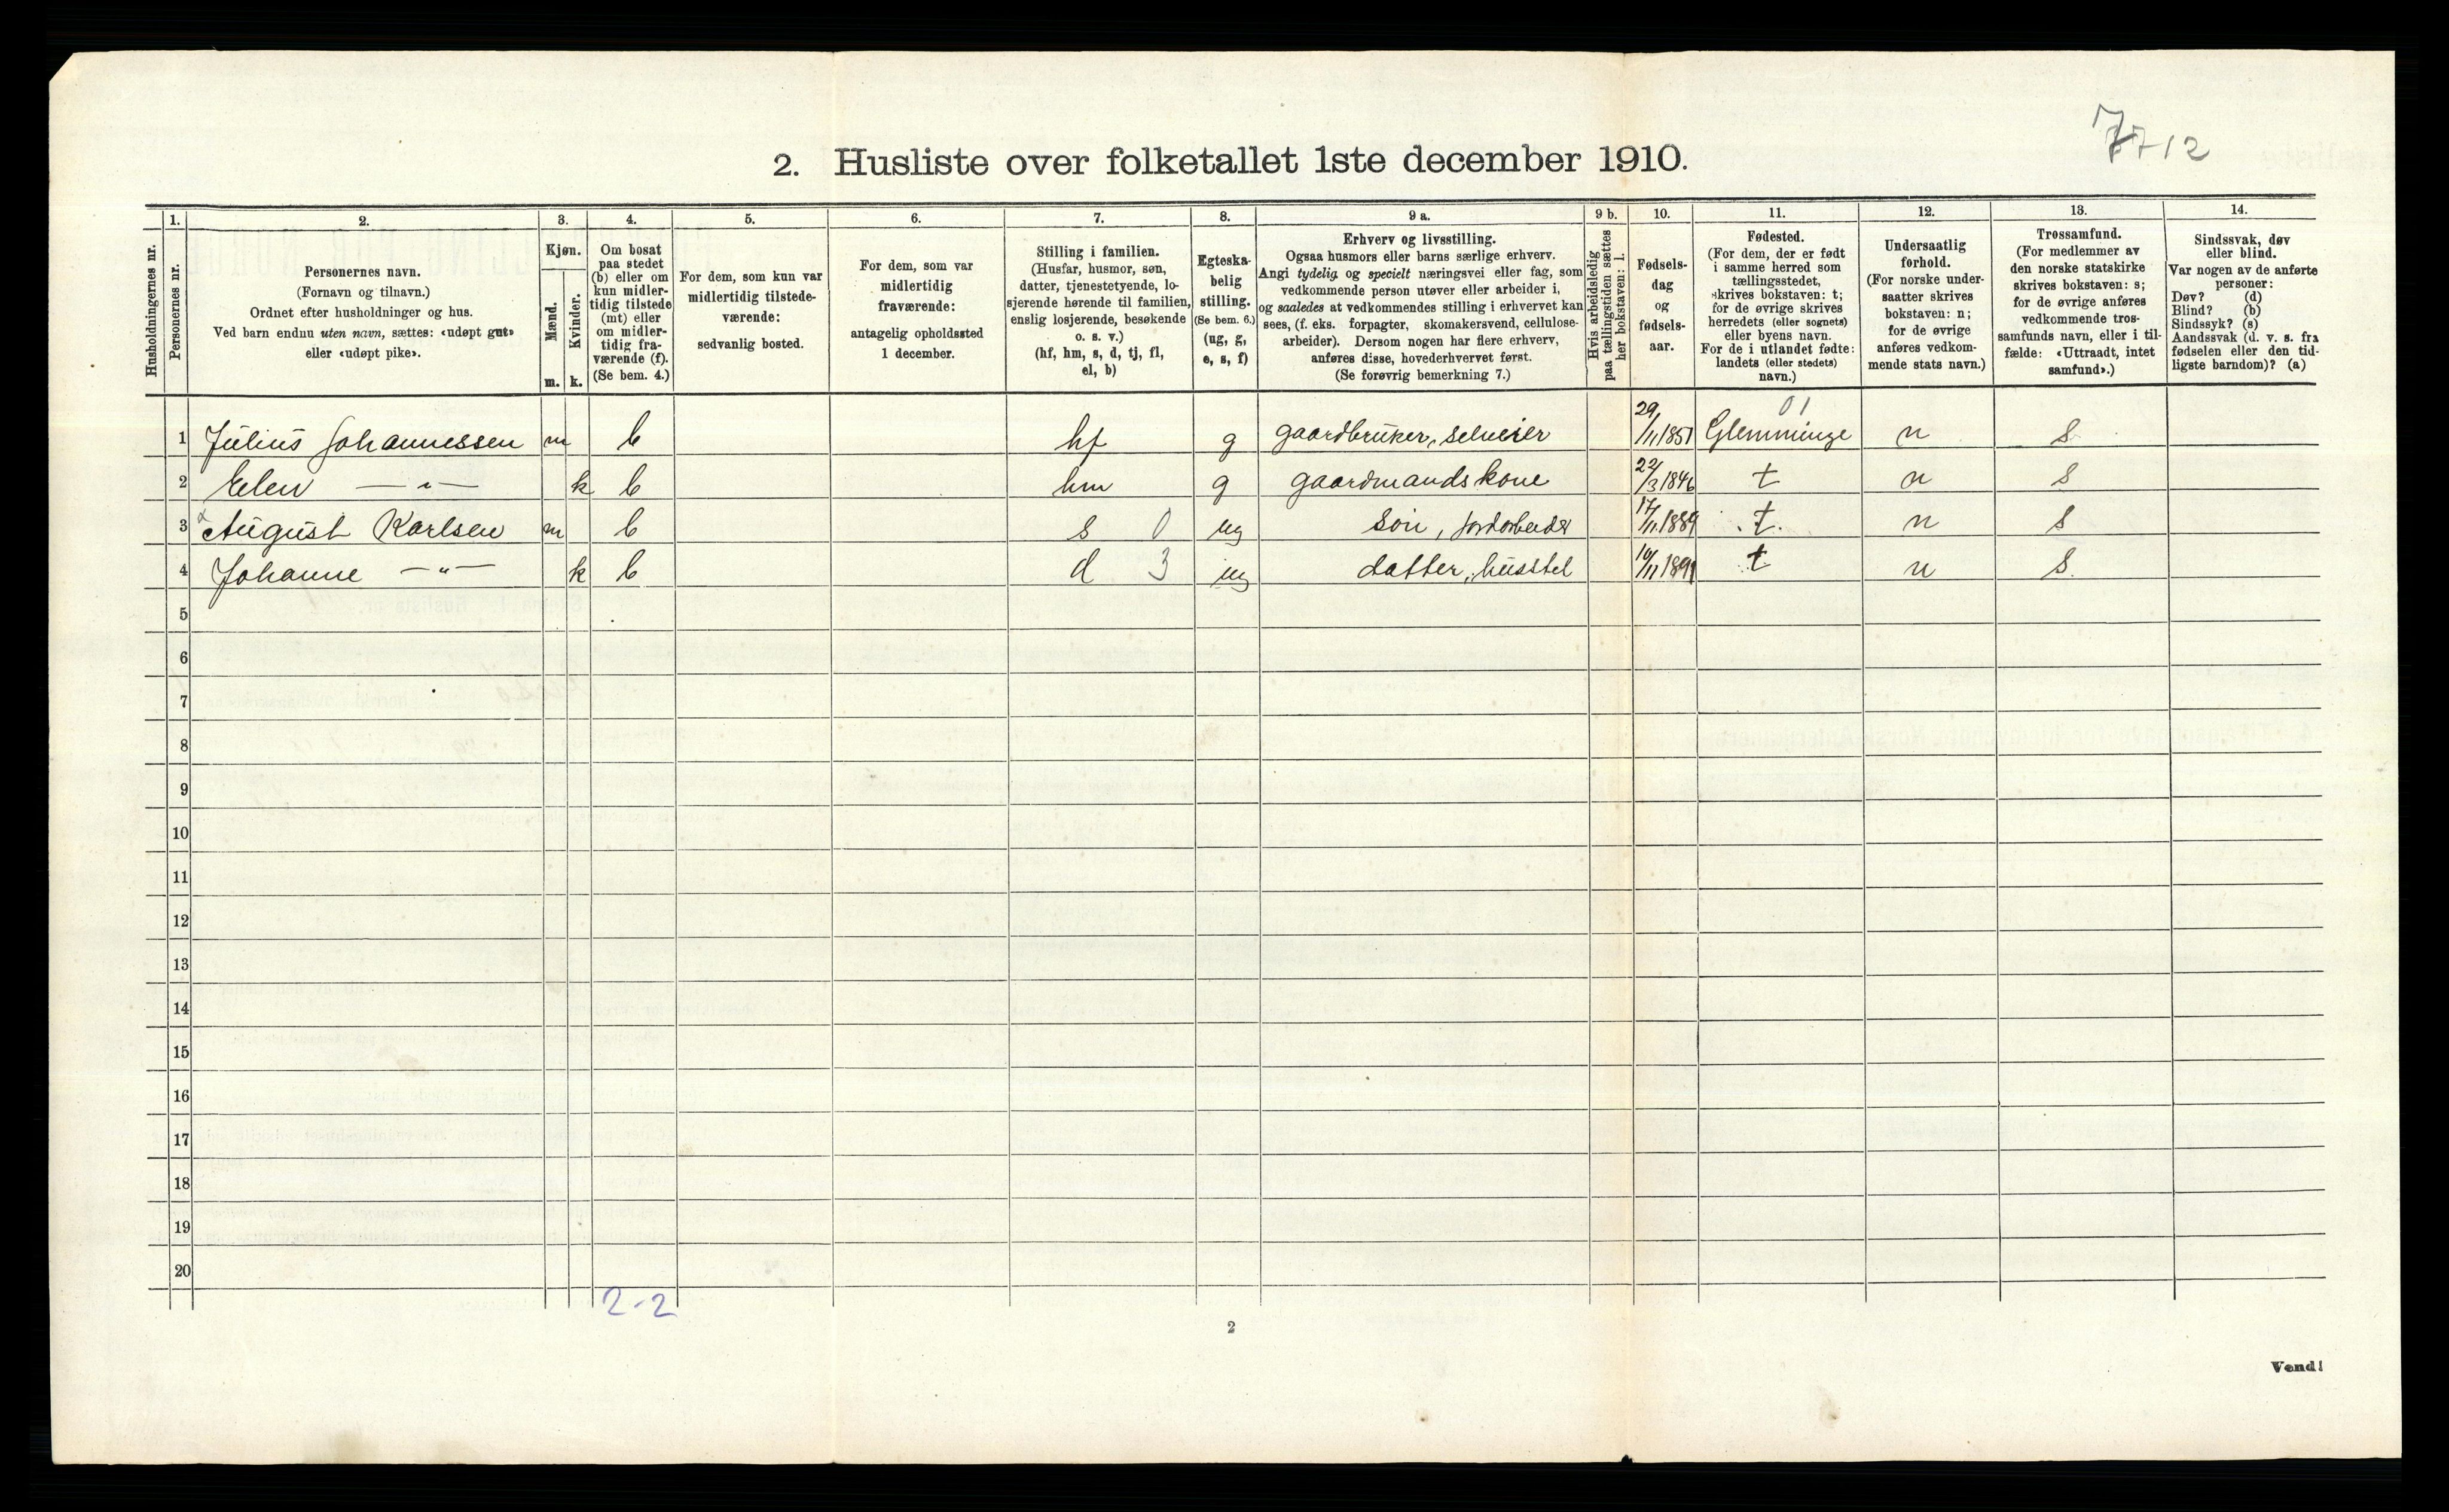 7712
2. Husliste over folketallet 1ste december 1910.
Husholdningernes nr.
1.
Personernes nr.
2.
Personernes navn.
(Fornavn og tilnavn.)
Ordnet efter husholdninger og hus.
Ved barn endnu uten navn, sættes: «udøpt gut»
eller «udøpt pike».
3.
Kjøn.
Mænd.
Kvinder.
m. k.
4.
Om bosat
paa stedet
(b) eller om
kun midler-
tidig tilstede
(mt) eller
om midler-
tidig fra-
værende (f).
(Se bem. 4.)
5.
For dem, som kun var
midlertidig tilstede-
værende:
sedvanlig bosted.
6.
For dem, som var
midlertidig
fraværende:
antagelig opholdssted
1 december.
7.
Stilling i familien.
(Husfar, husmor, søn,
datter, tjenestetyende, lo-
sjerende hørende til familien,
enslig losjerende, besøkende
o. s. v.)
(hf, hm, s, d, tj, fl,
el, b)
8.
Egteska-
belig
stilling.
(Se bem. 6.)
(ug, g,
e, s, f)
9 a.
Erhverv og livsstilling.
Ogsaa husmors eller barns særlige erhverv.
Angi tydelig og specielt næringsvei eller fag, som
vedkommende person utøver eller arbeider i,
og saaledes at vedkommendes stilling i erhvervet kan
sees, (f. eks. forpagter, skomakersvend, cellulose-
arbeider). Dersom nogen har flere erhverv,
anføres disse, hovederhvervet først.
(Se forøvrig bemerkning 7.)
9 b.
Hvis arbeidsledig
paa tællingstiden sættes
her bokstaven: l.
10.
Fødsels-
dag
og
fødsels-
aar.
11.
Fødested.
(For dem, der er født
i samme herred som
tællingsstedet,
skrives bokstaven: t;
for de øvrige skrives
herredets (eller sognets)
eller byens navn.
For de i utlandet fødte:
landets (eller stedets)
navn.)
12.
Undersaatlig
forhold.
(For norske under-
saatter skrives
bokstaven: n;
for de øvrige
anføres vedkom-
mende stats navn.)
13.
Trossamfund.
(For medlemmer av
den norske statskirke
skrives bokstaven: s;
for de øvrige anføres
vedkommende tros-
samfunds navn, eller i til-
fælde: «Uttraadt, intet
samfund».)
14.
Sindssvak, døv
eller blind.
Var nogen av de anførte
personer:
Døv? (d)
Blind? (b)
Sindssyk? (s)
Aandssvak (d. v. s. fra
fødselen eller den tid-
ligste barndom)? (a)
1 Julius Johannessen m b hf g gaardbruker, selveier 29/11 1851 Glemminge 01 n s
2 Elen —„— k b hm g gaardmandskone 22/3 1846 t n s
3 August Karlsen m b s 0 ug søn, jordarbeider 17/11 1889 t. n s
4 Johanne —„— k b d 3 ug datter, husstel 10/11 1891 t n s.
5
6
7
8
9
10
11
12
13
14
15
16
17
18
19
20
2-2
2
Vend!